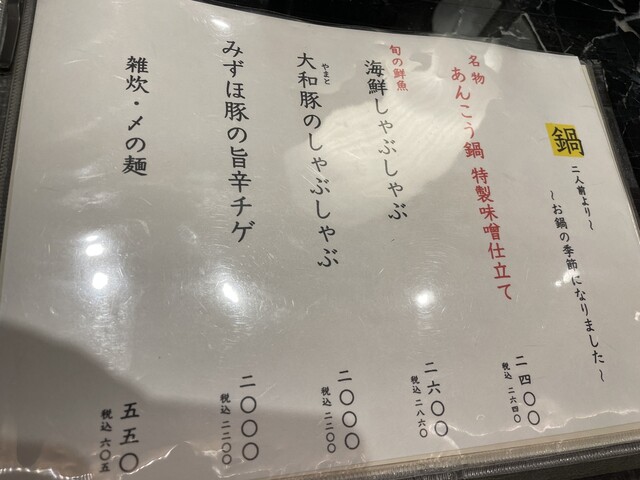 鍋 二人前より～
～お鍋の季節になりました～
名物
あんこう鍋 特製味噌仕立て
二四〇〇
税込 二六四〇
旬の鮮魚
海鮮しゃぶしゃぶ
二六〇〇
税込 二八六〇
やまと
大和豚のしゃぶしゃぶ
二〇〇〇
税込 二二〇〇
みずほ豚の旨辛チゲ
二〇〇〇
税込 二二〇〇
雑炊・〆の麺
五五〇
税込 六〇五